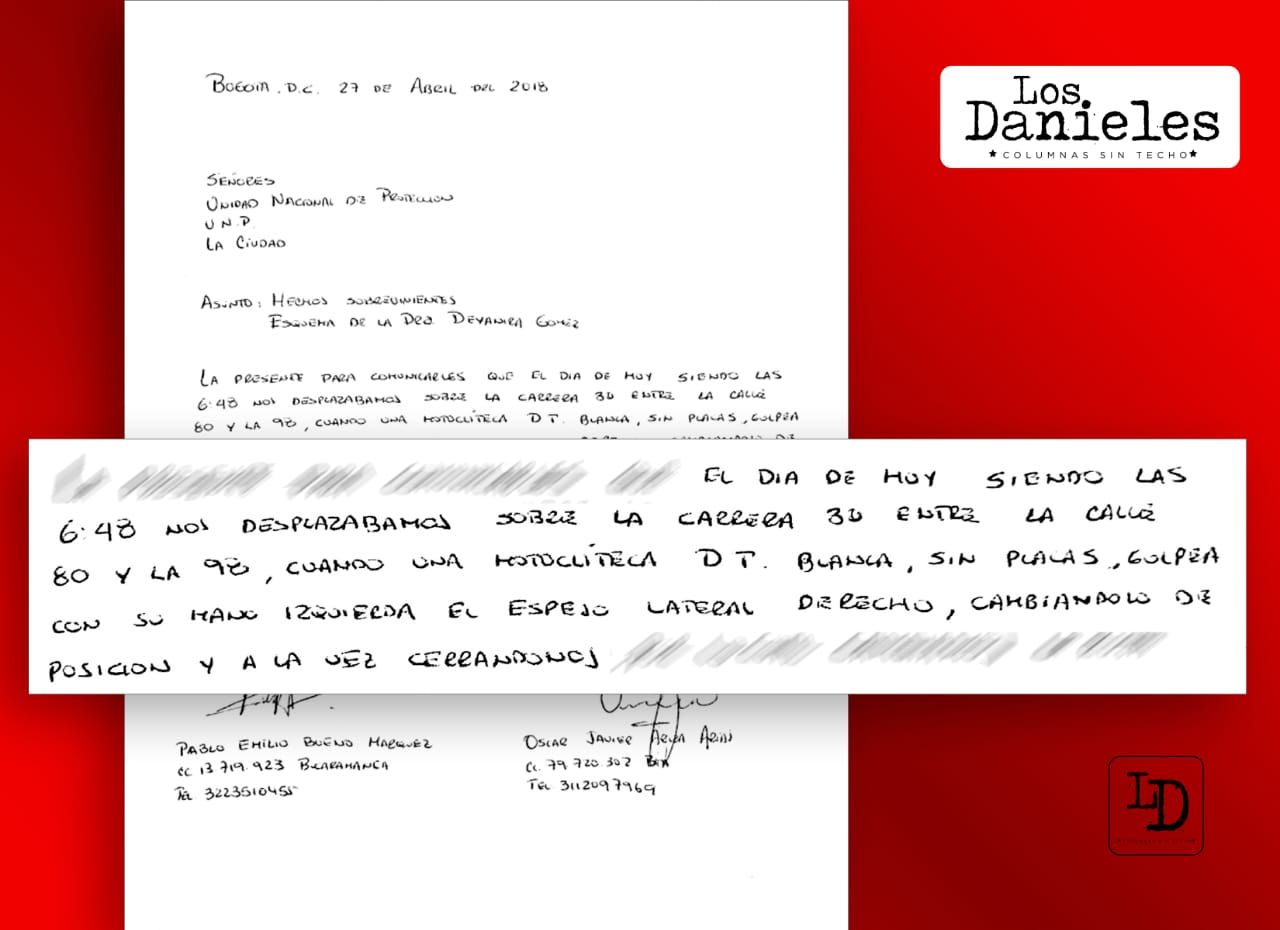 BOGOTA, D.C. 27 DE ABRIL DEL 2018
Los
Danieles
★COLUMNAS SIN TECHO★
SEÑORES
UNIDAD NACIONAL DE PROTECCION
U.N.P.
LA CIUDAD
ASUNTO: HECHOS SOBREVINIENTES
ESQUEMA DE LA DRA. DEYANIRA GOMEZ
LA PRESENTE PARA COMUNICARLES QUE EL DIA DE HOY SIENDO LAS
6:48 NOS DESPLAZABAMOS SOBRE LA CARRERA 30 ENTRE LA CALLE
80 Y LA 98, CUANDO UNA MOTOCLITECA D T. BLANCA, SIN PLACAS, GOLPEA
EL DIA DE HOY SIENDO LAS
6:48 NOS DESPLAZABAMOS SOBRE LA CARRERA 30 ENTRE LA CALLE
80 Y LA 98, CUANDO UNA MOTOCLITECA D T. BLANCA, SIN PLACAS, GOLPEA
CON SU MANO IZQUIERDA EL ESPEJO LATERAL DERECHO, CAMBIANDOLO DE
POSICION Y A LA VEZ CERRANDONOS
PABLO EMILIO BUENO MARQUEZ
CC 13 719.923 BUCARAMANGA
TEL 3223510455
OSCAR JAVIER ARIAS
CC. 79 720.302
TEL 3112097969
LD